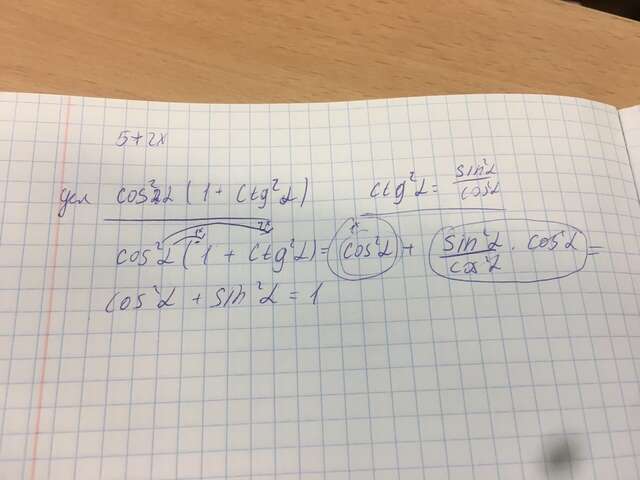 5+2x
cos²α (1 + ctg²α)
ctg²α = sin²α / cos²α
cos²α (1 + ctg²α) = cos²α + sin²α / cos²α · cos²α =
cos²α + sin²α = 1